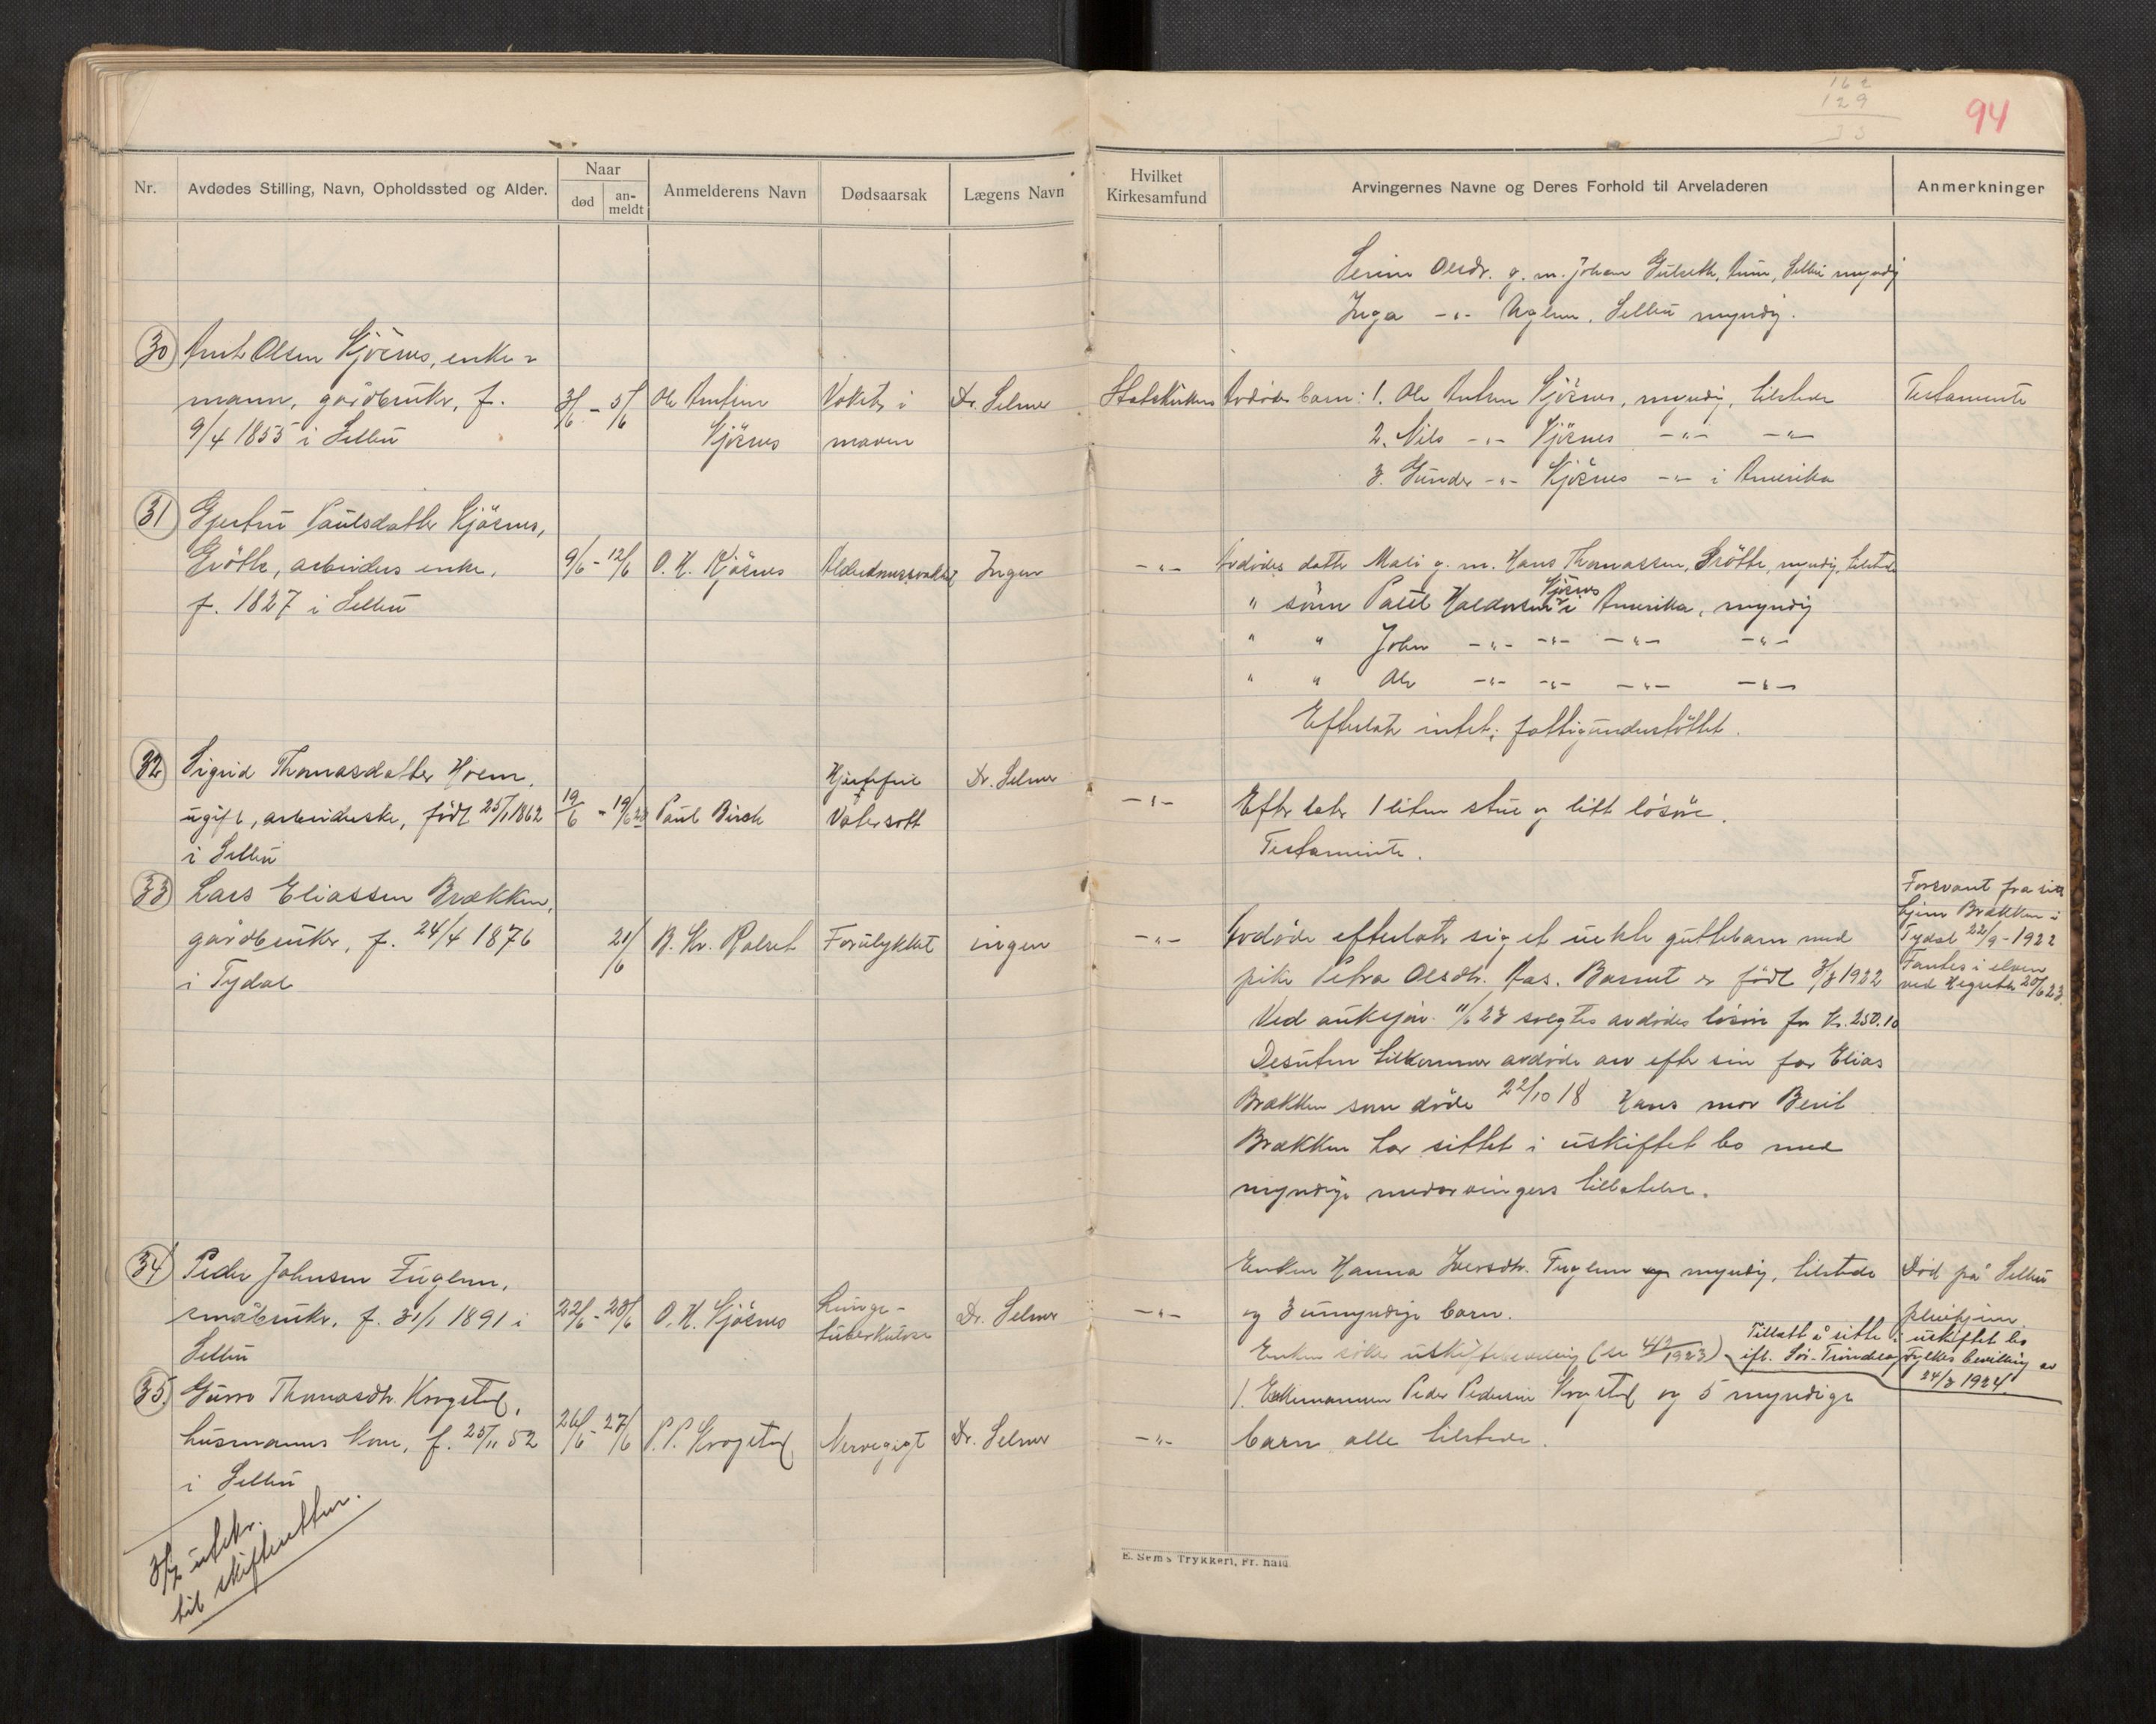 162
129
33
94
Nr.
Avdødes Stilling, Navn, Opholdssted og Alder.
Naar
død
an-
meldt
Anmelderens Navn
Dødsaarsak
Lægens Navn
Hvilket
Kirkesamfund
Arvingernes Navne og Deres Forhold til Arveladeren
Anmerkninger
Olsdr. g. m. Johan Gulseth, Selbu myndig
Inga -"- Uglem, Selbu myndig.
30 Arnt Olsen Kjøsnes, enke-
mann, gårdbruker, f.
9/4 1855 i Selbu
3/6 - 5/6
Ole Arntsen
Kjøsnes
Vokster i
maven
Dr. Selmer
Statskirken
Avdødes barn: 1. Ole Arntsen Kjøsnes, myndig, tilstede
2. Nils -"- Kjøsnes -"- -"-
3. Gunder -"- Kjøsnes -"- i Amerika
Testamente
31 Gjertru Paulsdatter Kjøsnes,
Grøtte, arbeiders enke,
f. 1827 i Selbu
9/6 - 12/6
O. H. Kjøsnes
Alderdomssvakhet
Ingen
-"-
Avdødes datter Mali g. m. Hans Thomassen, Grøtte, myndig, tilstede
" sønn Paul Haldorsen Kjøsnes i Amerika, myndig
" " John -"- -"- -"- -"-
" " Ole -"- -"- -"- -"-
Efterlot intet; fattigunderstøttet.
32 Sigrid Thomasdatter Hoem,
ugift, arbeiderske, født 25/1 1862
i Selbu
19/6 - 19/6 23
Paul Birck
Hjertefeil
Vatersott
Dr. Selmer
-"-
Efterlater 1 liten stue og litt løsøre.
Testamente.
33 Lars Eliassen Brækken,
gårdbruker, f. 24/4 1876
i Tydal
21/6
B. Kr. Rolset
Forulykket
ingen
-"-
Avdøde efterlot sig et uekte guttebarn med
pike Petra Olsdtr. Aas. Barnet er født 3/8 1922
Ved auksjon 11/6 23 solgtes avdødes løsøre for kr. 250.10
Desuten tilkommer avdøde arv efter sin far Elias
Brækken som døde 22/10 18 Hans mor Beril
Brækken har sittet i uskiftet bo med
myndige medarvingers tillatelse.
Forsvant fra sitt
hjem Brækken i
Tydal 22/9-1922
Fantes i elven
ved Hegsetd 20/6 23.
34 Peder Johnsen Fuglem,
småbruker, f. 31/1 1891 i
Selbu
22/6 - 23/6
O. H. Kjøsnes
Lunge-
tuberkulose
Dr. Selmer
-"-
Enken Hanna Iversdtr. Fuglem og myndig, tilstede
og 3 umyndige barn.
Enken søker uskiftebevilling (se 412/1923)
Død på Selbu
pleiehjem.
Tillatt å sitte i uskiftet bo
ifl. Sør-Trøndelag Fylkes bevilling av
24/3 1924.
35. Guro Thomasdtr. Krogstad,
husmanns kone, f. 25/11 52
i Selbu
26/6 - 27/6
P. P. Krogstad
Nervegigt
Dr. Selmer
-"-
1. Enkemannen Peder Pedersen Krogstad og 5 myndige
barn alle tilstede.
3/7 utskr.
til skifteretten.
E. Sems Trykkeri, Fr.hald